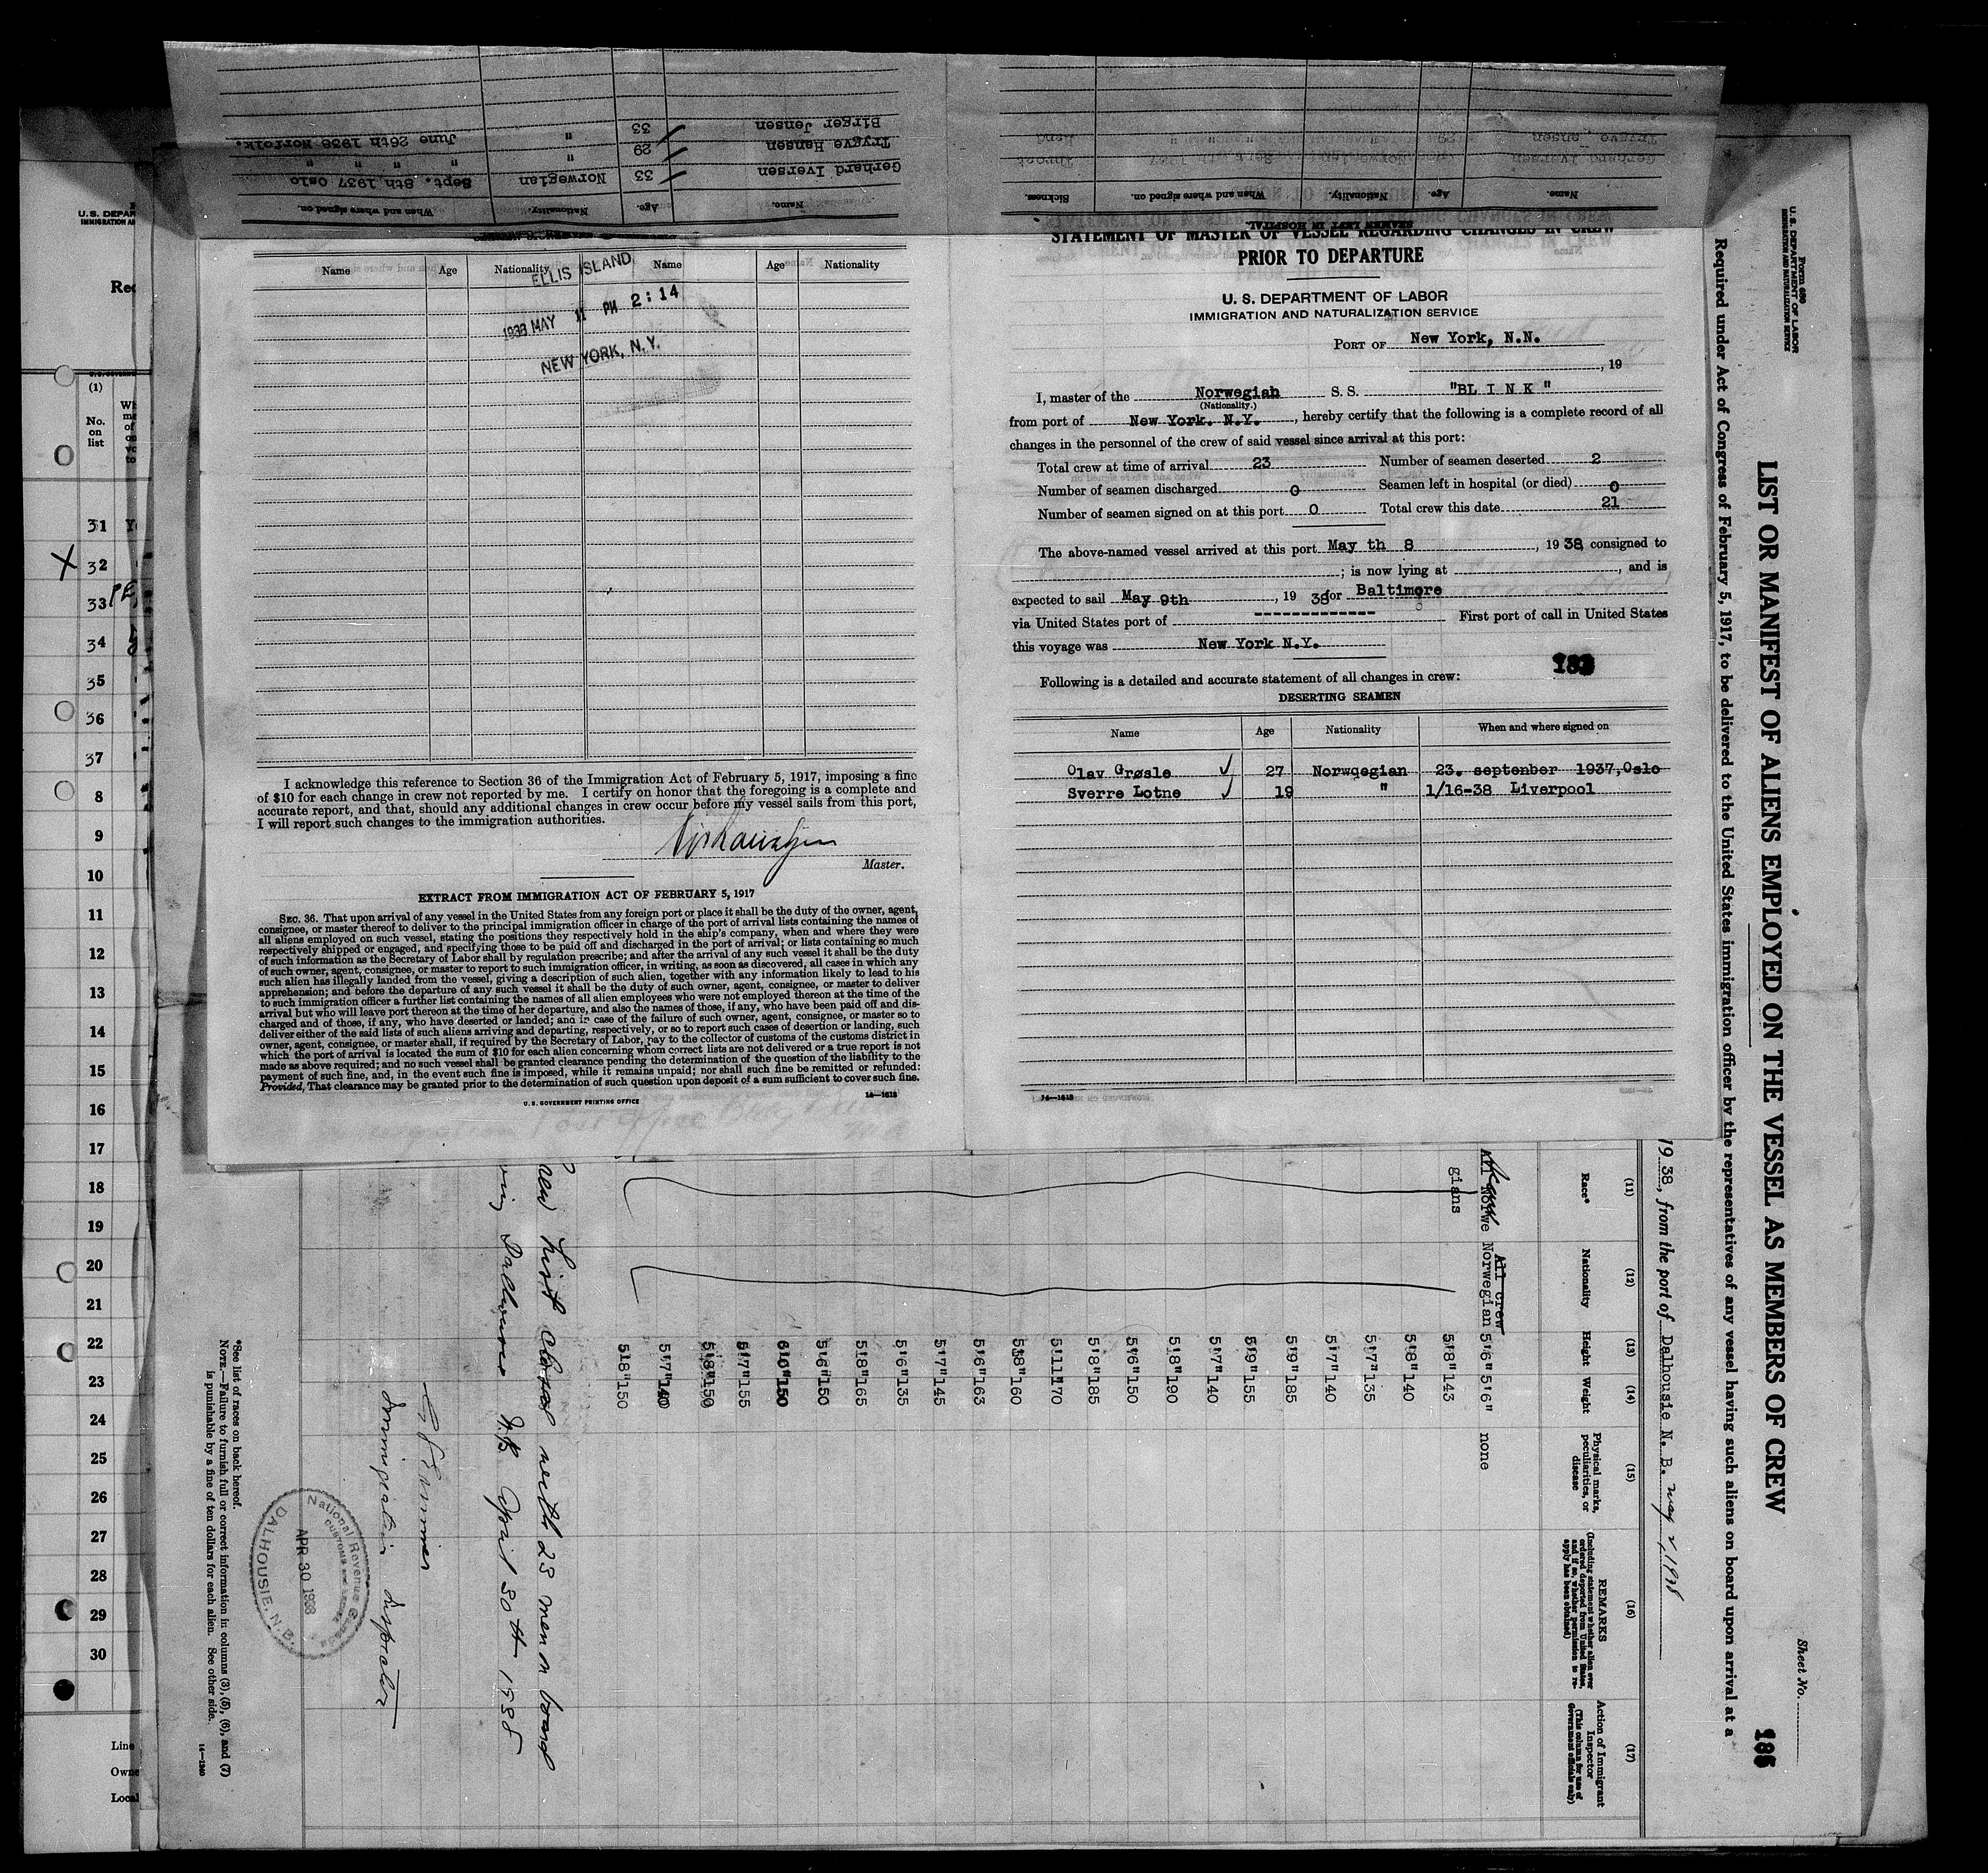 Name. Age. Nationality. When and where signed on.
Gerhard Iversen 33 Norwegian Sept. 8th 1937 Oslo
Trygve Hansen 29 " " " " "
Birger Jensen 33 " June 26th 1938 Norfolk.
Name. Age. Nationality. When and where signed on. Sickness.
SEAMEN LEFT IN HOSPITAL.
Name Age Nationality Name Age Nationality
ELLIS ISLAND
1938 MAY 11 PM 2:14
NEW YORK, N.Y.
I acknowledge this reference to Section 36 of the Immigration Act of February 5, 1917, imposing a fine
of $10 for each change in crew not reported by me. I certify on honor that the foregoing is a complete and
accurate report, and that, should any additional changes in crew occur before my vessel sails from this port,
I will report such changes to the immigration authorities.
Master.
EXTRACT FROM IMMIGRATION ACT OF FEBRUARY 5, 1917
SEC. 36. That upon arrival of any vessel in the United States from any foreign port or place it shall be the duty of the owner, agent,
consignee, or master thereof to deliver to the principal immigration officer in charge of the port of arrival lists containing the names of
all aliens employed on such vessel, stating the positions they respectively hold in the ship's company, when and where they were
respectively shipped or engaged, and specifying those to be paid off and discharged in the port of arrival; or lists containing so much
of such information as the Secretary of Labor shall by regulation prescribe; and after the arrival of any such vessel it shall be the duty
of such owner, agent, consignee, or master to report to such immigration officer, in writing, as soon as discovered, all cases in which any
such alien has illegally landed from the vessel, giving a description of such alien, together with any information likely to lead to his
apprehension; and before the departure of any such vessel it shall be the duty of such owner, agent, consignee, or master to deliver
to such immigration officer a further list containing the names of all alien employees who were not employed thereon at the time of the
arrival but who will leave port thereon at the time of her departure, and also the names of those, if any, who have been paid off and dis-
charged and of those, if any, who have deserted or landed; and in case of the failure of such owner, agent, consignee, or master so to
deliver either of the said lists of such aliens arriving and departing, respectively, or so to report such cases of desertion or landing, such
owner, agent, consignee, or master shall, if required by the Secretary of Labor, pay to the collector of customs of the customs district in
which the port of arrival is located the sum of $10 for each alien concerning whom correct lists are not delivered or a true report is not
made as above required; and no such vessel shall be granted clearance pending the determination of the question of the liability to the
payment of such fine, and, in the event such fine is imposed, while it remains unpaid; nor shall such fine be remitted or refunded:
Provided, That clearance may be granted prior to the determination of such question upon deposit of a sum sufficient to cover such fine.
U. S. GOVERNMENT PRINTING OFFICE 14—1613
STATEMENT OF MASTER OF VESSEL REGARDING CHANGES IN CREW
PRIOR TO DEPARTURE
U. S. DEPARTMENT OF LABOR
IMMIGRATION AND NATURALIZATION SERVICE
PORT OF New York, N.N.
, 19
I, master of the Norwegian S. S. "BL I N K"
(Nationality.)
from port of New York. N.Y. , hereby certify that the following is a complete record of all
changes in the personnel of the crew of said vessel since arrival at this port:
Total crew at time of arrival 23 Number of seamen deserted 2
Number of seamen discharged 0 Seamen left in hospital (or died) 0
Number of seamen signed on at this port 0 Total crew this date 21
The above-named vessel arrived at this port May th 8 , 1938, consigned to
; is now lying at , and is
expected to sail May 9th , 19 38 for Baltimore
via United States port of ------------- First port of call in United States
this voyage was New York N.Y.
Following is a detailed and accurate statement of all changes in crew:
DESERTING SEAMEN
Name Age Nationality When and where signed on
Olav Grøsle 27 Norwqegian 23. septenber 1937,Oslo
Sverre Lotne 19 " 1/16-38 Liverpool
14—1613
Form 680
U. S. DEPARTMENT OF LABOR
IMMIGRATION AND NATURALIZATION SERVICE
Sheet No.
185
LIST OR MANIFEST OF ALIENS EMPLOYED ON THE VESSEL AS MEMBERS OF CREW
Required under Act of Congress of February 5, 1917, to be delivered to the United States immigration officer by the representatives of any vessel having such aliens on board upon arrival at a
19 38, from the port of Dalhousie N. B. may 2, 1938
(11) (12) (13) (14) (15) (16) (17)
Race* Nationality Height Weight Physical marks, peculiarities, or disease
REMARKS
(Including statement whether alien ever ordered deported from United States, and if so, whether permission to re-apply has been obtained)
Action of Immigrant Inspector
(This column for use of Government officials only)
All crew
All Norwe Norwegian 5'6" 5'6" none
gians
5'8" 143
5'8" 140
5'7" 135
5'7" 140
5'9" 185
5'9" 155
5'7" 140
5'8" 190
5'6" 150
5'8" 185
5'11 170
5'8" 160
5'6" 163
5'7" 145
5'6" 135
5'8" 165
5'6" 150
6'0" 150
5'7" 155
5'8" 150
5'7" 140
5'8" 150
Crew List closed with 23 men on board
Dalhousie N.B. April 30th 1938
Immigration Inspector
National Revenue Canada
CUSTOMS and EXCISE
APR 30 1938
DALHOUSIE, N.B.
*See list of races on back hereof.
NOTE.—Failure to furnish full or correct information in columns (3), (5), (6), and (7)
is punishable by a fine of ten dollars for each alien. See other side.
14—1240
U.S. DEPAR
IMMIGRATION A
Rec
(1)
No.
on
list
31
32
33
34
35
36
37
8
9
10
11
12
13
14
15
16
17
18
19
20
21
22
23
24
25
26
27
28
29
30
Line
Owne
Local